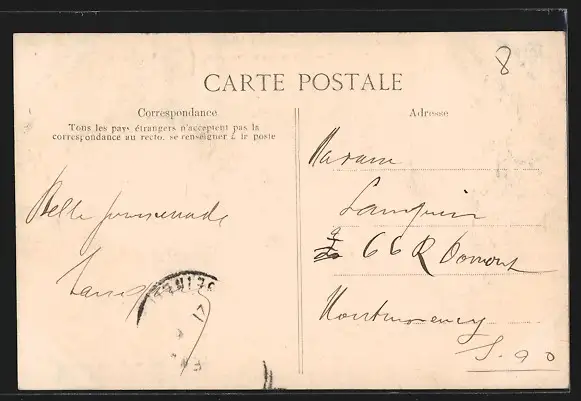 8
CARTE POSTALE
Correspondance
Tous les pays étrangers n'acceptent pas la
correspondance au recto. se renseigner à la poste
Belle promenade
Adresse
Madame
Languin
66 R Domont
Montmorency
S. & O